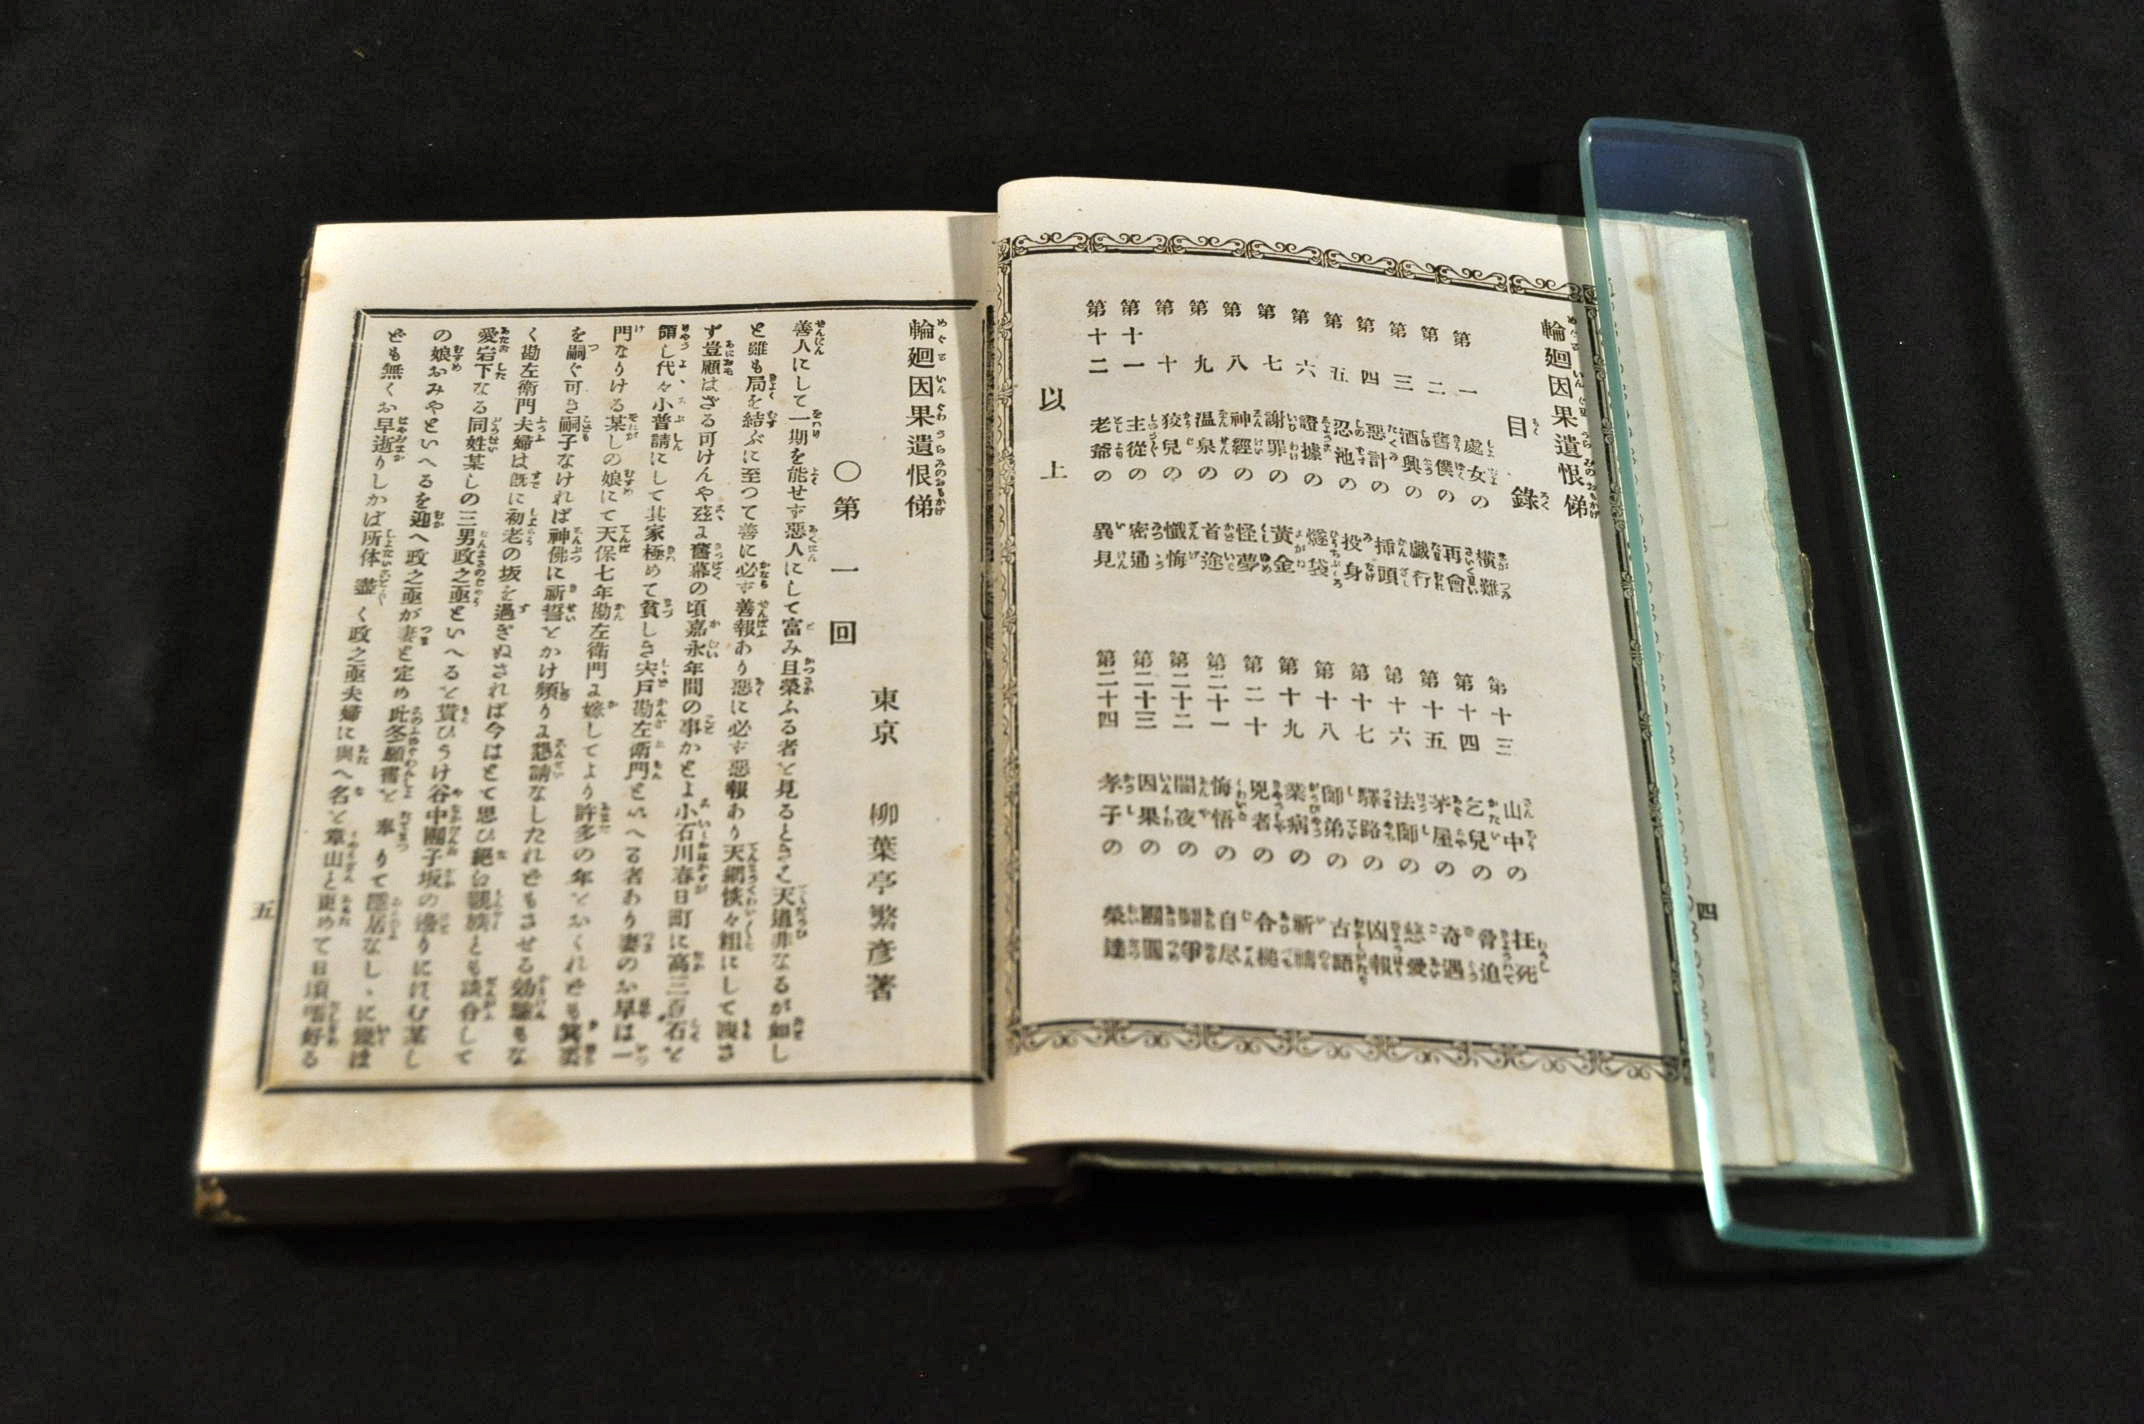 輪廻因果遺恨俤
目錄
第一 處女の橫難
第二 舊僕の再會
第三 酒興の戲行
第四 惡計の挿頭
第五 忍池の投身
第六 證據の燧袋
第七 謝罪の黃金
第八 神經の怪夢
第九 温泉の首途
第十 狡兒の懺悔
第十一 主從の密通
第十二 老爺の異見
第十三 山中の狂死
第十四 乞兒の脅迫
第十五 茅屋の奇遇
第十六 法師の慈愛
第十七 驛路の凶報
第十八 師弟の古語
第十九 業病の祈禱
第二十 兇者の合槌
第二十一 悔悟の自尽
第二十二 闇夜の鬪爭
第二十三 因果の團圓
第二十四 孝子の榮達
以上
四
輪廻因果遺恨俤
東京 柳葉亭繁彦著
○第一回
善人にして一期を能せず惡人にして富み且榮ふる者を見るときは天道非なるが如し
と雖も局を結ぶに至つて善に必ず善報あり惡に必ず惡報あり天網恢々粗にして洩さ
ず豈顧はざる可けんや玆よ舊幕の頃嘉永年間の事かとよ小石川春日町に高三百石を
領し代々小普請にして其家極めて貧しき宍戸勘左衛門といへる者あり妻のお早は一
門なりける某しの娘にて天保七年勘左衛門に嫁してより許多の年をおくれども箕裘
を嗣ぐ可き嗣子なければ神佛に祈誓をかけ頻りに懇請なしたれどもさせる効驗もな
く勘左衛門夫婦は既に初老の坂を過ぎぬされば今はとて思ひ絕ち親族とも談合して
愛宕下なる同姓某しの三男政之亟といへるを貰ひうけ谷中團子坂の邊りに住む某し
の娘おみやといへるを迎へ政之亟が妻と定め此冬願書を奉りて隱居なしゝに幾ほ
ども無くお早逝りしかば所体盡く政之亟夫婦に與へ名を章山と更めて日頃嗜好る
五